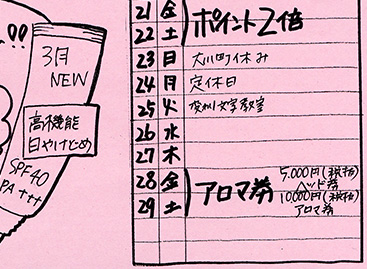 !!
3月
NEW
高機能
日やけどめ
SPF40
PA+++
21 金
22 土
ポイント2倍
23 日 大川町休み
24 月 定休日
25 火 教室
26 水
27 木
28 金
29 土
アロマ券
5,000円(税抜)
ヘッド券
10,000円(税抜)
アロマ券